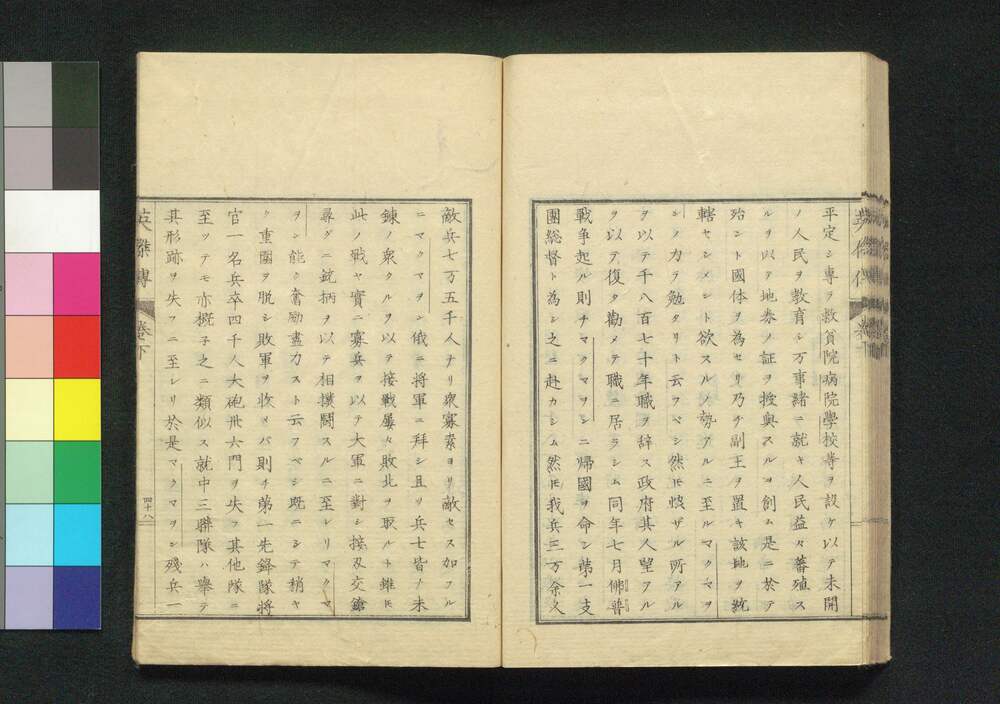 平定シ専ラ救貧院病院學校等ヲ設ケ以テ未開
ノ人民ヲ教育シ万事緒ニ就キ人民益々蕃殖ス
ルヲ以テ地券ノ証ヲ授與スルヿ創ム是ニ於テ
殆ント國体ヲ為セリ乃チ副王ヲ置キ該地ヲ統
轄セシメント欲スルノ勢アルニ至ルマクマヲ
シノ力ラ勉タリト云フベシ然𪜈 ザル所アル
ヲ以テ千八百七十年職ヲ辞ス政府其人望アル
ヲ以テ復タ勸メテ職ニ居ラシム同年七月佛普
戦争起ル則チマクマヲンニ帰國ヲ命シ第一支
團総督ト為シ之ニ赴カシム然𪜈我兵三万余人
敵兵七万五千人ナリ衆寡素ヨリ敵セス加フル
ニマクマヲン俄ニ将軍ニ拜シ且ツ兵士皆ナ未
錬ノ衆タルヲ以テ接戦屢々敗北ヲ取ルト雖𪜈
此ノ戦ヤ實ニ寡兵ヲ以テ大軍ニ對シ接刄交鎗
尋グニ銃柄ヲ以テ相撲闘スルニ至レリマクマ
ヲン能ク奮励盡力スト云フベシ既ニシテ稍ヤ
ク重圍ヲ脱シ敗軍ヲ收メバ則チ第一先鋒隊将
官一名兵卒四千人大砲卅六門ヲ失フ其他隊ニ
至ツテモ亦概子之ニ類似ス就中三聯隊ハ舉テ
其形跡ヲ失フニ至レリ於是マクマヲン残兵一
英傑傳
巻下
四十八